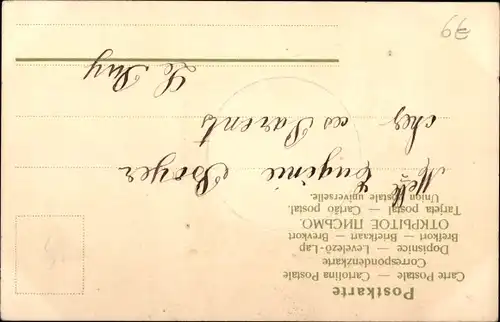 Postkarte
Carte Postale — Cartolina Postale
Correspondenzkarte
Dopisnice — Levelező-Lap
Brefkort — Briefkaart — Brevkort
ОТКРЫТОЕ ПИСЬМО.
Tarjeta postal — Cartão postal.
Union postale universelle.
Melle Eugénie Boyer
chez ses Parents
Le Puy
39